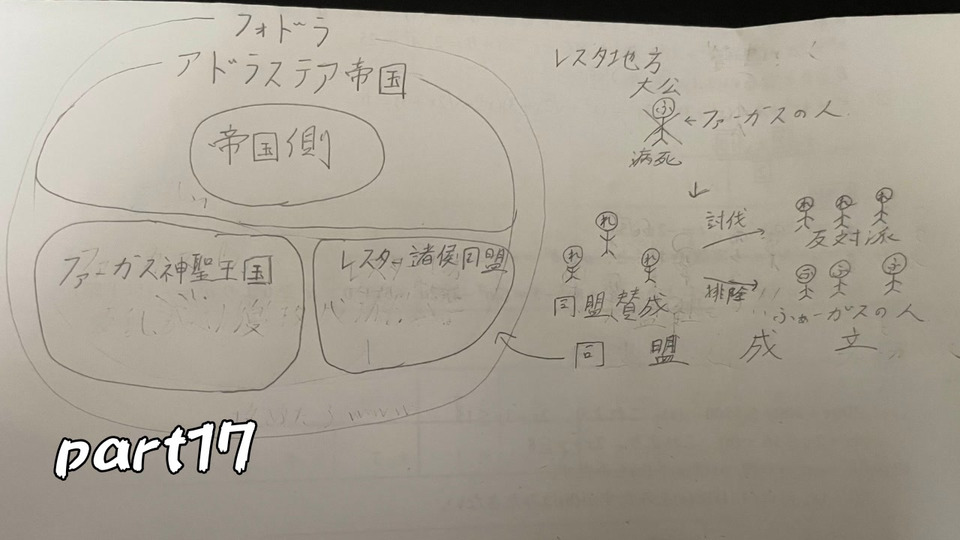 フォドラ
アドラステア帝国
帝国側
ファーガス神聖王国
レスター諸侯同盟
レスタ地方
大公
ふ
←ファーガスの人
病死
↓
れ
れ れ
同盟賛成
討伐
れ れ れ
反対派
排除
ふ ふ
ふぁーガスの人
同盟成立
part17